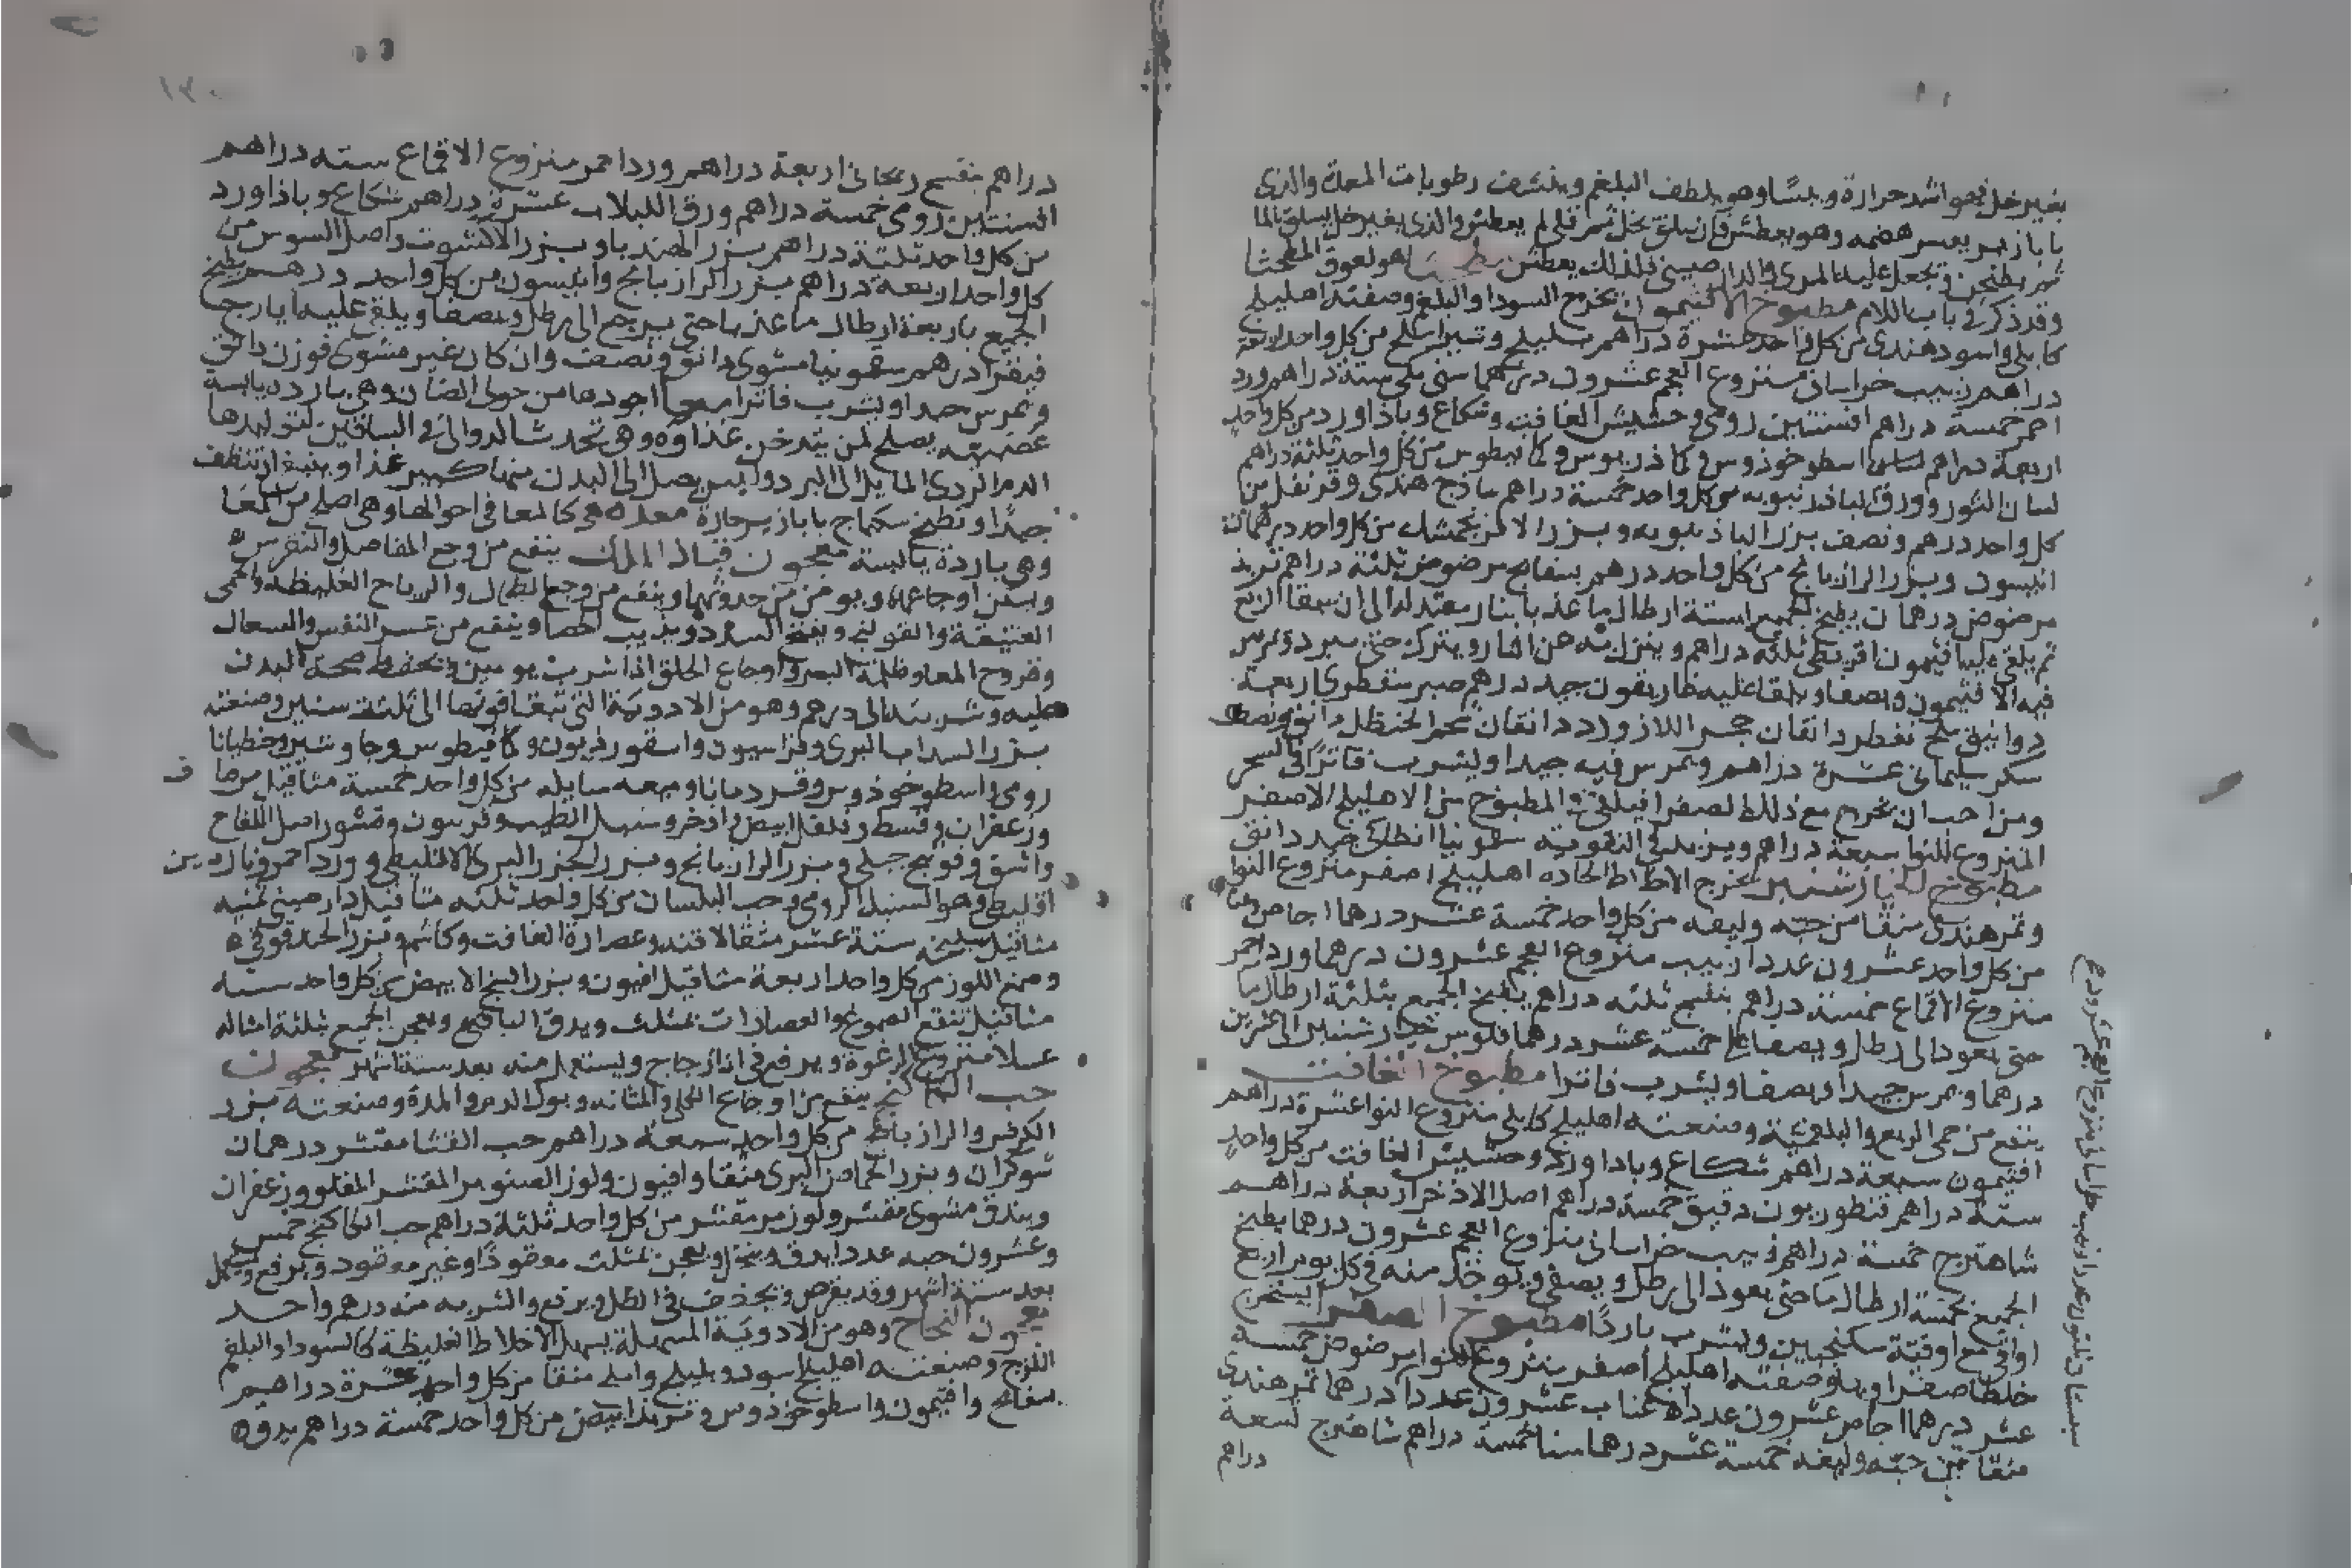 بغير خل فهو اشد حرارة ويبسًا وهو يلطف البلغم وينشف رطوبات المعدة والذى
بابازير يعسر هضمه وهو يعطش فان سلق بخل ثم قلى لم يعطش والذى بغير خل يسلق بالما
ثم يطجن ويجعل عليه المرى والدار صينى فلذلك يعطش هو لعوق
وقد ذكر فى باب اللام مطبوخ الافتيمون يخرج السودا والبلغم وصفته اهليلج
كابلى واسود هندى من كل واحد عشرة دراهم بليلج وشير املج من كل واحد اربعة
دراهم زبيب خراسانى منزوع العجم عشرون درهما سنى مكى ستة دراهم ورد
احمر خمسة دراهم افسنتين رومى وحشيش الغافت وشكاع وباذاورد من كل واحد
اربعة دراهم اسطوخوذوس وكماذريوس وكمافيطوس من كل واحد ثلثة دراهم
لسان الثور وورق الباذرنبويه من كل واحد خمسة دراهم ساذج هندى وقرنفل من
كل واحد درهم ونصف بزر الباذرنبويه وبزر الافرنجمشك من كل واحد درهمان
انيسون وبزر الرازيانج من كل واحد درهم بسفايج مرضوض ثلثة دراهم تربذ
مرضوض درهمان يطبخ الجميع بستة ارطال ما عذب بنار معتدلة الى ان يبقا الربع
ثم يلقى عليه افتيمون اقريطى ثلثه دراهم وينزل به عن النار ويترك حتى يبرد ويمرس
فيه الافتيمون ويصفا ويلقا عليه غاريقون جيد درهم صبر سقطرى اربعة
دوانيق ملح نفطى دانقان حجر اللازورد دانقان شحم الحنظل دانق ونصف
سكر سليمانى عشرة دراهم ويمرس فيه جيدا ويشرب فاترًا فى السحر
ومن احب ان يخرج مع ذلك الصفرا فيلقى فى المطبوخ من الاهليلج الاصفر
المنزوع النوا سبعة دراهم ويزيد فى التقوية سقمونيا انطاكى جيد دانق
مطبوخ الخيارشنبر يخرج الاخلاط الحاده اهليلج اصفر منزوع النوا
وتمر هندى منقا من حبه وليفه من كل واحد خمسة عشر درهما اجاص
من كل واحد عشرون عددا زبيب منزوع العجم عشرون درهما ورد احمر
منزوع الاقماع خمسة دراهم بنفسج ثلثه دراهم يطبخ الجميع بثلثة ارطال ما
حتى يعود الى رطل ويصفا على خمسة عشر درهما فلوس خيارشنبر الى عشرين
درهما ويمرس جيدا ويصفا ويشرب فاترا مطبوخ الغافت
ينفع من حمى الربع والبلغمية وصنعته اهليلج كابلى منزوع النوا عشرة دراهم
افتيمون سبعة دراهم شكاع وباداورد وحشيش الغافت من كل واحد
ستة دراهم قنطوريون دقيق خمسة دراهم اصل الاذخر اربعة دراهم
شاهترج خمسة دراهم زبيب خراسانى منزوع العجم عشرون درهما يطبخ
الجميع بخمسة ارطال ما حتى يعود الى رطل ويصفى ويوخذ منه فى كل يوم اربع
اواقى مع اوقية سكنجبين ويشرب باردًا مطبوخ الصفرا يستخرج
خلطا صفراويا وصفته اهليلج اصفر منزوع النوا مرضوض خمسة
عشر درهما اجاص عشرون عددا عناب عشرون عددا درهما تمر هندى
منقا من حبه وليفه خمسة عشر درهما سنا خمسة دراهم شاهترج تسعة
دراهم
دراهم بنفسج ريحانى اربعة دراهم ورد احمر منزوع الاقماع سته دراهم
افسنتين رومى خمسة دراهم ورق اللبلاب عشرة دراهم شكاع وباذاورد
من كل واحد ثلثة دراهم بزر الهندبا وبزر الاكشوت واصل السوس من
كل واحد اربعة دراهم بزر الرازيانج وانيسون من كل واحد درهم يطبخ
الجميع باربعة ارطال ما عذب حتى يرجع الى رطل ويصفا ويلقى عليه ايارج
فيقرا درهم سقمونيا مشوى دانق ونصف وان كان غير مشوى فوزن دانق
ويمرس جيدا ويشرب فاترا معا اجودها من حولى الضان وهى بارده يابسة
عصبيه يصلح لمن يتدخن غذاوه وهى تحدث الدوالى فى الساقين لتوليدها
الدم الردى المايل الى البرد وليس يصل الى البدن منها كبير غذا وينبغى ان تنظف
جيدًا وتطبخ سكباج بابازير حارة معده هى كالمعا فى احوالها وهى اصلح من المعا
وهى باردة يابسة معجون قباد الملك ينفع من وجع المفاصل والنقرس
ويسكن اوجاعها ويومن من حدوثها وينفع من وجع الطحال والرياح الغليظه والحمى
العتيقة والقولنج ويفتح السدد ويذيب الحصا وينفع من عسر النفس والسعال
وقروح المعا وظلمة البصر واوجاع الحلق اذا شرب يومين ويحفظ صحة البدن
عليه وشربته الى درهم وهو من الادوية التى تبقا قوتها الى ثلثة سنين وصنعته
بزر السداب البرى وفراسيون واسقورذيون وكمافيطوس وجاوشير وجنطيانا
رومى واسطوخوذوس وقردمانا وميعه سايله من كل واحد خمسة مثاقيل مرصا ف
وزعفران وقسط وفلفل ابيض واذخر وسنبل الطيب وفربيون وقشور اصل اللفاح
واشق وفوتنج جبلى وبزر الرازيانج وبزر الجزر البرى الاقليطى وورد احمر وناردين
اقليطى وهو السنبل الرومى وحب البلسان من كل واحد ثلثه مثاقيل دارصينى ثمنيه
مثاقيل سليخه ستة عشر مثقالا قند وعصارة الغافت وكاشم وبزر الحندقوقى
وصمغ اللوز من كل واحد اربعة مثاقيل افيون وبزر البنج الابيض من كل واحد سته
مثاقيل تنقع الصموغ والعصارات بمثلث ويدق الباقى ويعجن الجميع بثلثة امثاله
عسلا منزوع الرغوة ويرفع فى انا زجاج ويستعمل منه بعد ستة اشهر معجون
حب الكاكنج ينفع من اوجاع الكلى والمثانه وبول الدم والمدة وصنعته بزر
الكرفس والرازيانج من كل واحد سبعة دراهم حب القثا مقشر درهمان
شوكران وبزر الحماض البرى منقا وافيون ولوز الصنوبر المقشر المقلو وزعفران
وبندق مشوى مقشر ولوز مر مقشر من كل واحد ثلثة دراهم حب الكاكنج خمس
وعشرون حبه عددا يدق وينخل ويعجن بمثلث ويرفع ويستعمل
بعد ستة اشهر وقد يقرص ويجفف فى الظل ويرفع والشربه منه درهم واحد
معجون النجاح وهو من الادوية المسهلة يسهل الاخلاط الغليظة كالسودا والبلغم
اللزج وصنعته اهليلج اسود وبليلج واملج منقا من كل واحد عشرة دراهم
بسفايج وافتيمون واسطوخوذوس وتربذ ابيض من كل واحد خمسة دراهم يدق